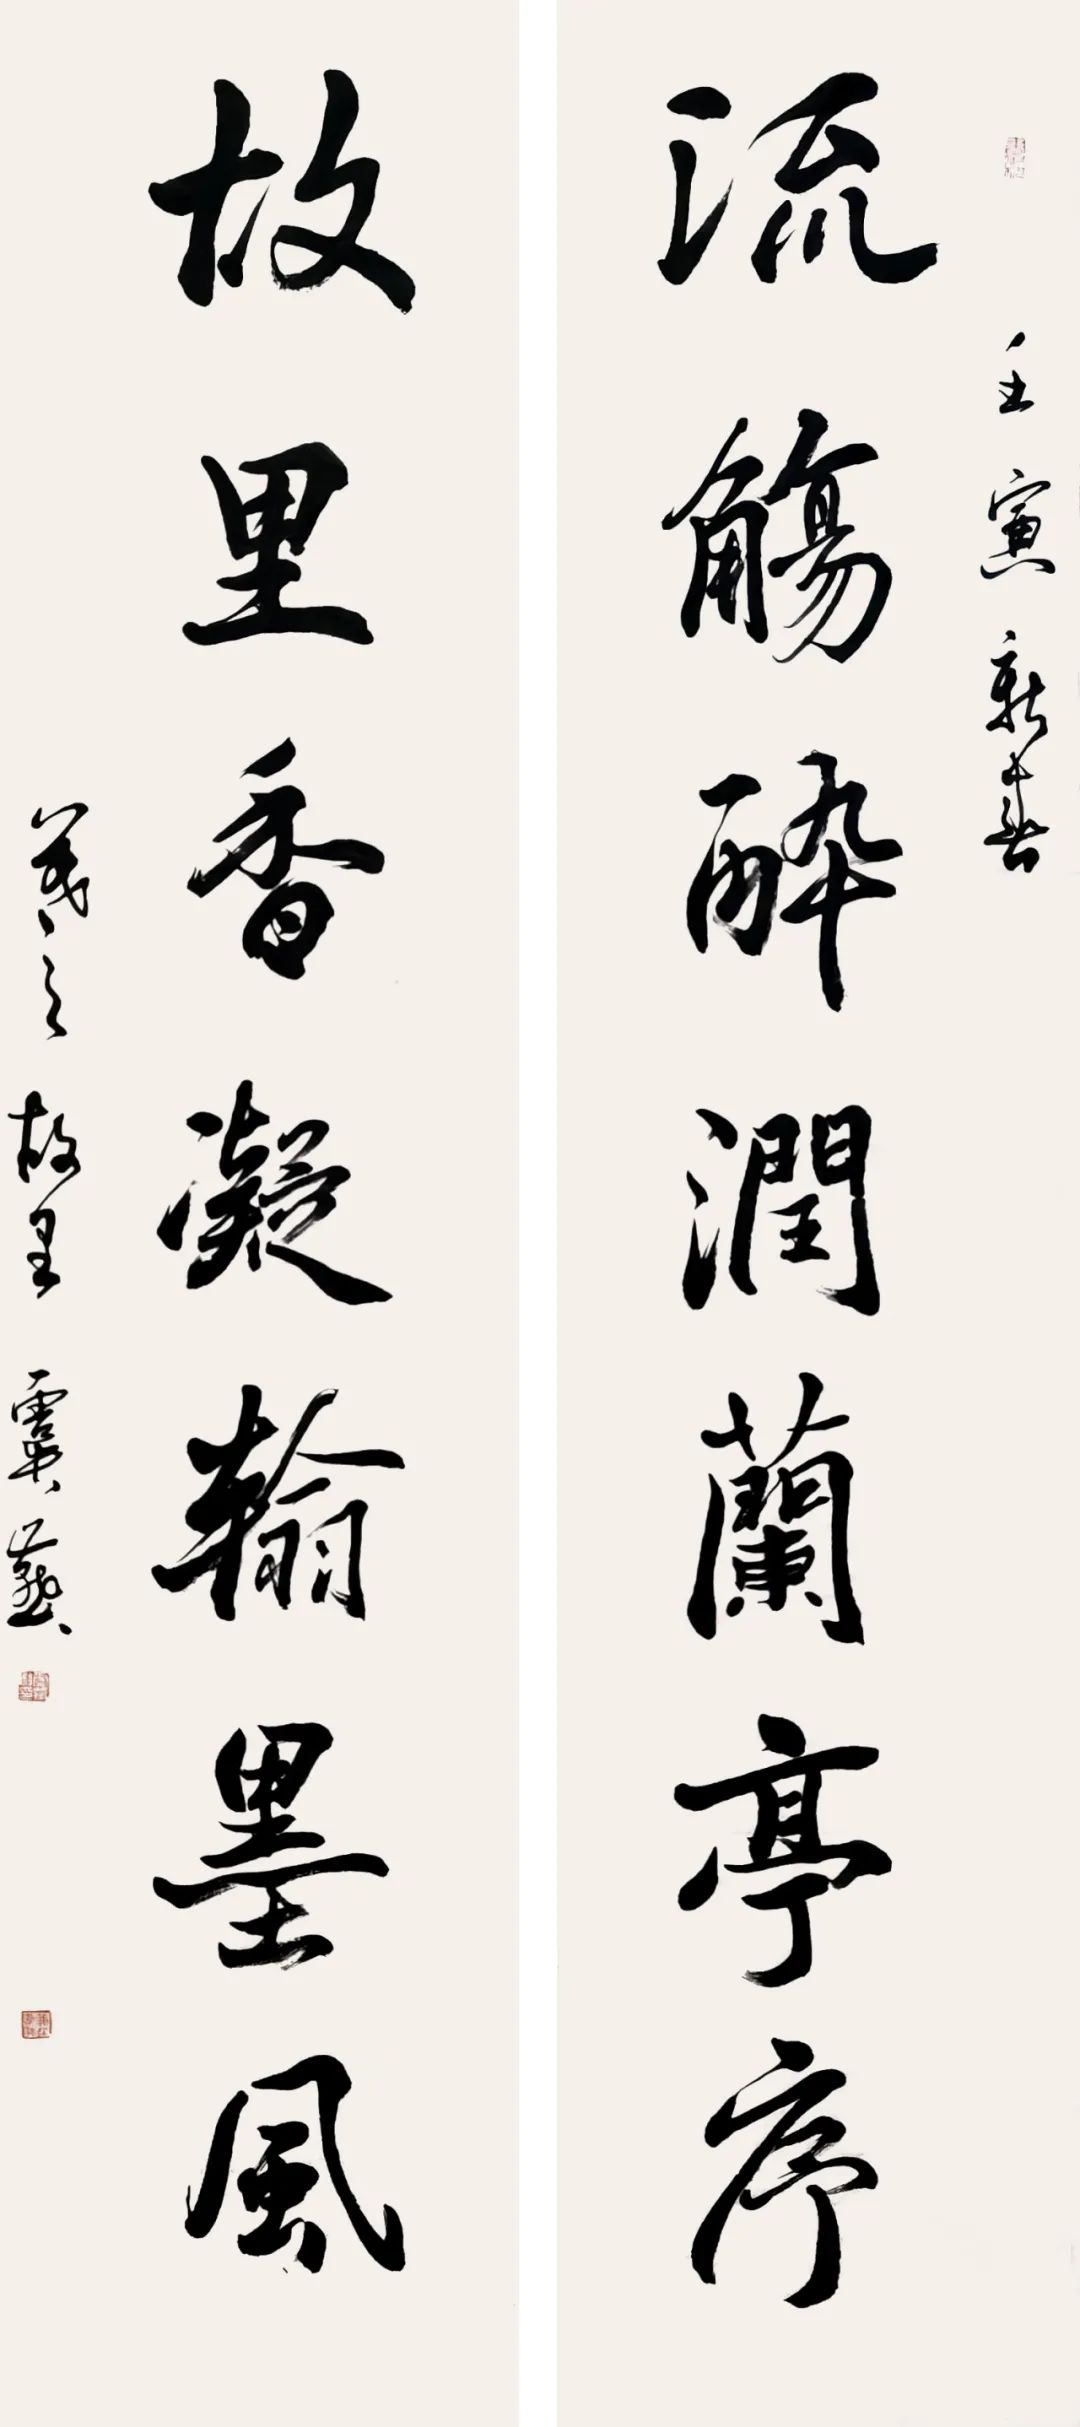 壬寅新春
流觴醉潤蘭亭序
故里香凝翰墨風
羲之故里